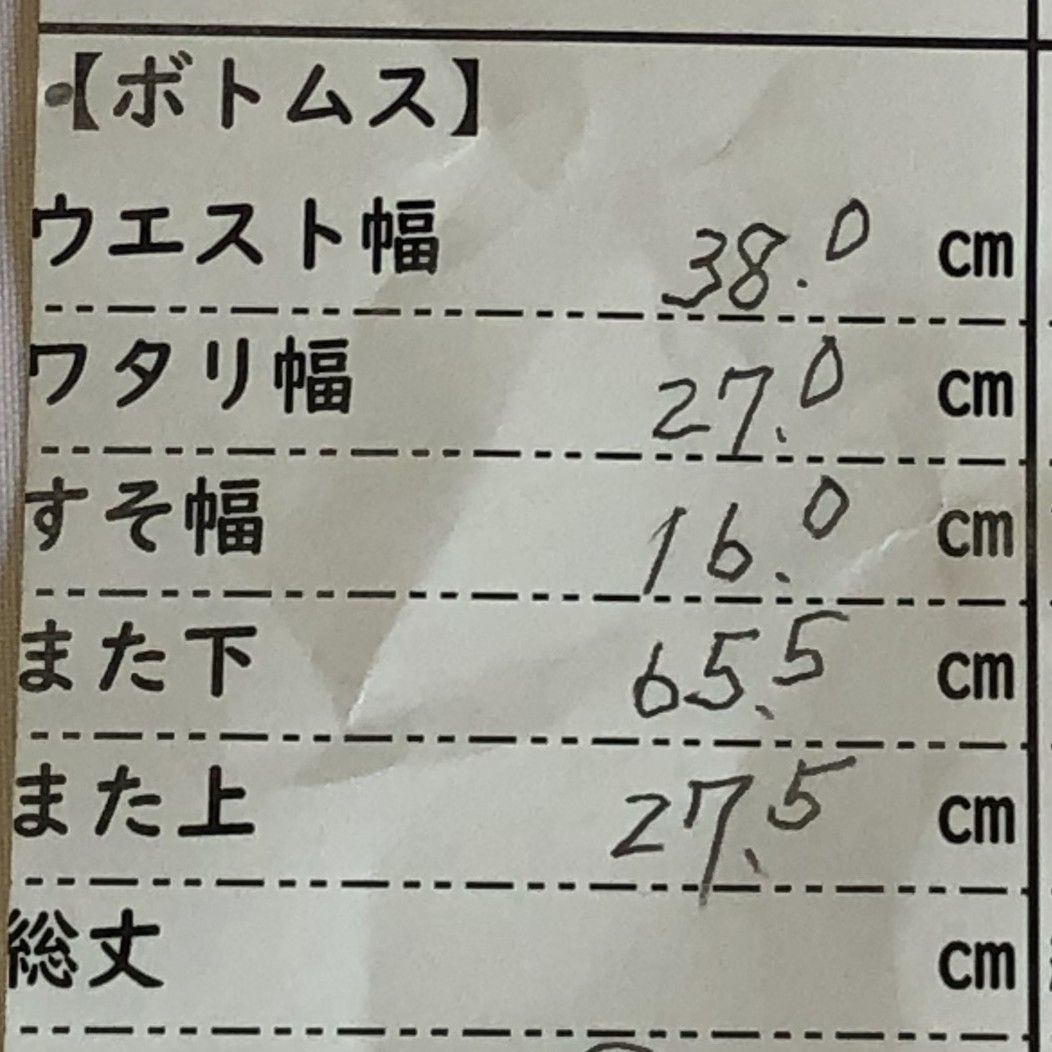 【ボトムス】
ウエスト幅 38.0 cm
ワタリ幅 27.0 cm
すそ幅 16.0 cm
また下 65.5 cm
また上 27.5 cm
総丈 cm